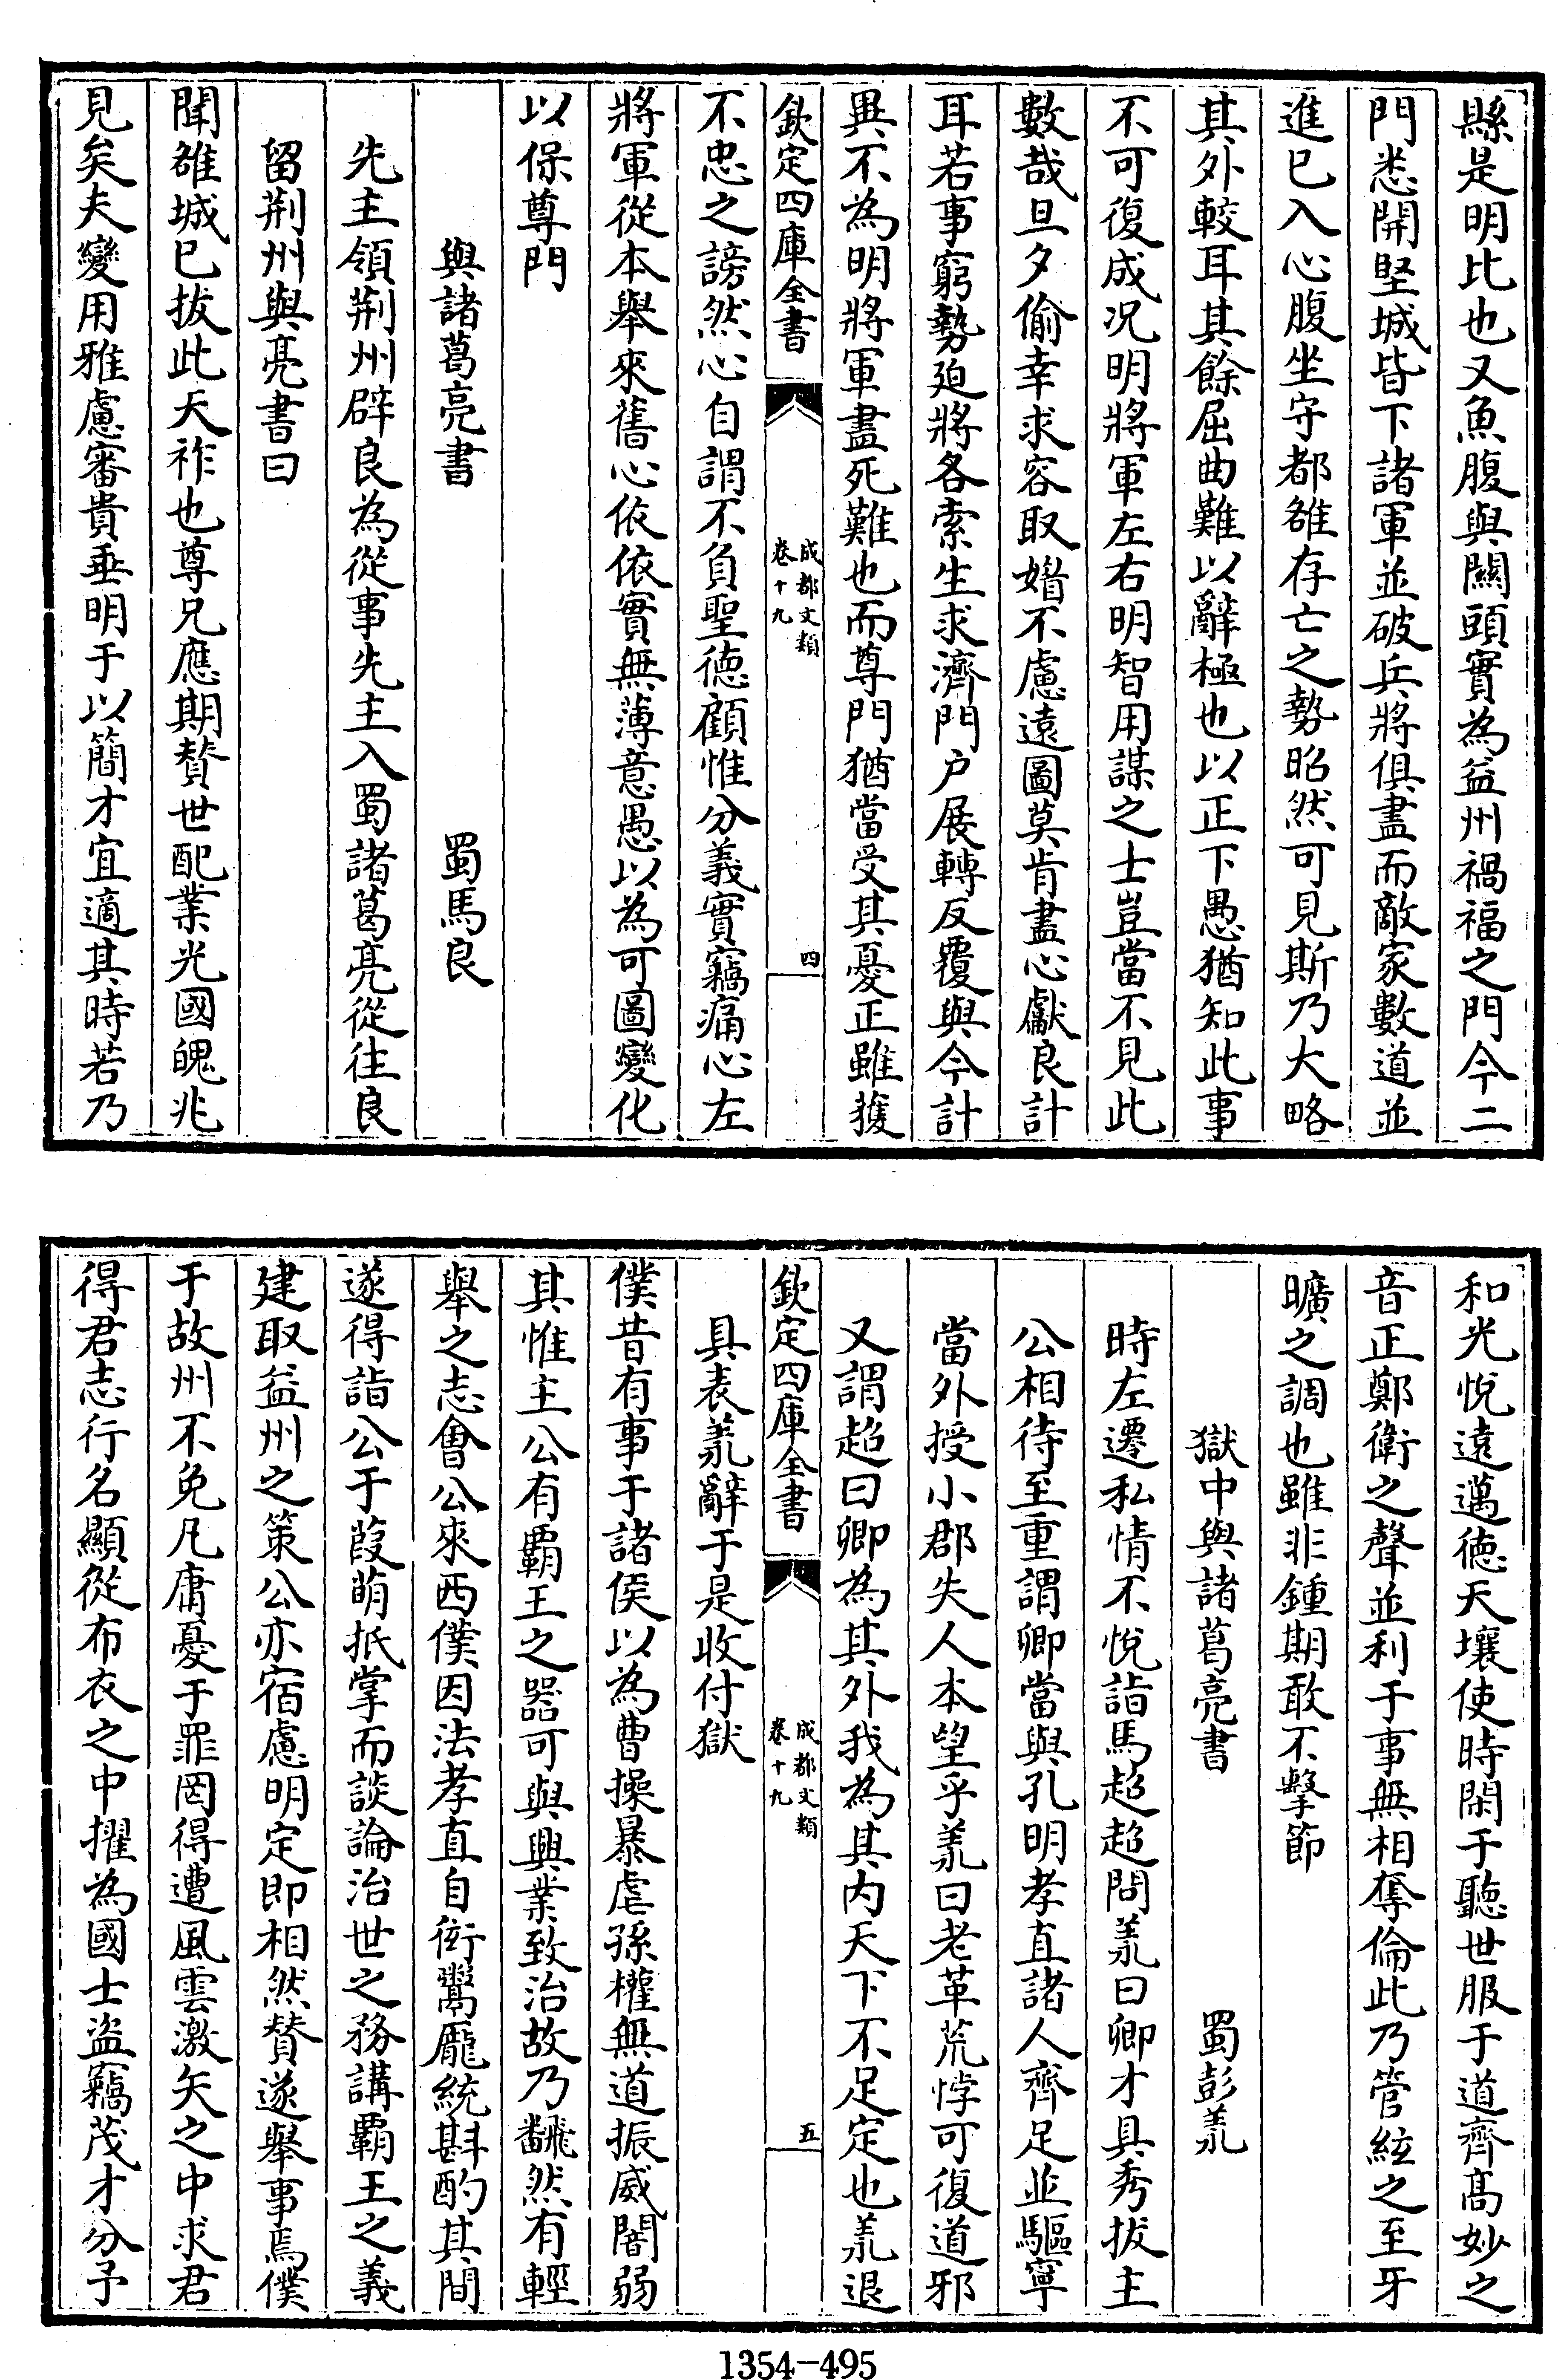 縣是明比也又魚腹與關頭實為益州禍福之門今二
門悉開堅城皆下諸軍並破兵將俱盡而敵家數道並
進已入心腹坐守都雒存亡之勢昭然可見斯乃大略
其外較耳其餘屈曲難以辭極也以正下愚猶知此事
不可復成况明將軍左右明智用謀之士豈當不見此
數哉旦夕偷幸求容取媚不慮遠圖莫肯盡心獻良計
耳若事窮勢廹將各索生求濟門户展轉反覆與今計
異不為明將軍盡死難也而尊門猶當受其憂正雖獲
欽定四庫全書
成都文類
卷十九
四
不忠之謗然心自謂不負聖徳顧惟分義實竊痛心左
將軍從本舉來舊心依依實無薄意愚以為可圖變化
以保尊門
與諸葛亮書 蜀馬良
先主領荆州辟良為從事先主入蜀諸葛亮從往良
留荆州與亮書曰
聞雒城已拔此天祚也尊兄應期賛世配業光國魄兆
見矣夫變用雅慮審貴垂明于以簡才宜適其時若乃
和光悅遠邁徳天壤使時閑于聽世服于道齊髙妙之
音正鄭衛之聲並利于事無相奪倫此乃管絃之至牙
曠之調也雖非鍾期敢不擊節
獄中與諸葛亮書 蜀彭羕
時左遷私情不悅詣馬超超問羕曰卿才具秀拔主
公相待至重謂卿當與孔明孝直諸人齊足並驅寧
當外授小郡失人本望乎羕曰老革荒悖可復道邪
又謂超曰卿為其外我為其内天下不足定也羕退
欽定四庫全書
成都文類
卷十九
五
具表羕辭于是收付獄
僕昔有事于諸侯以為曹操暴虐孫權無道振威闇弱
其惟主公有霸王之器可與興業致治故乃飜然有輕
舉之志會公來西僕因法孝直自衒鬻龎統斟酌其間
遂得詣公于葭萌抵掌而談論治世之務講霸王之義
建取益州之策公亦宿慮明定即相然賛遂舉事焉僕
于故州不免凡庸憂于罪罔得遭風雲激矢之中求君
得君志行名顯從布衣之中擢為國士盜竊茂才分子
1354-495